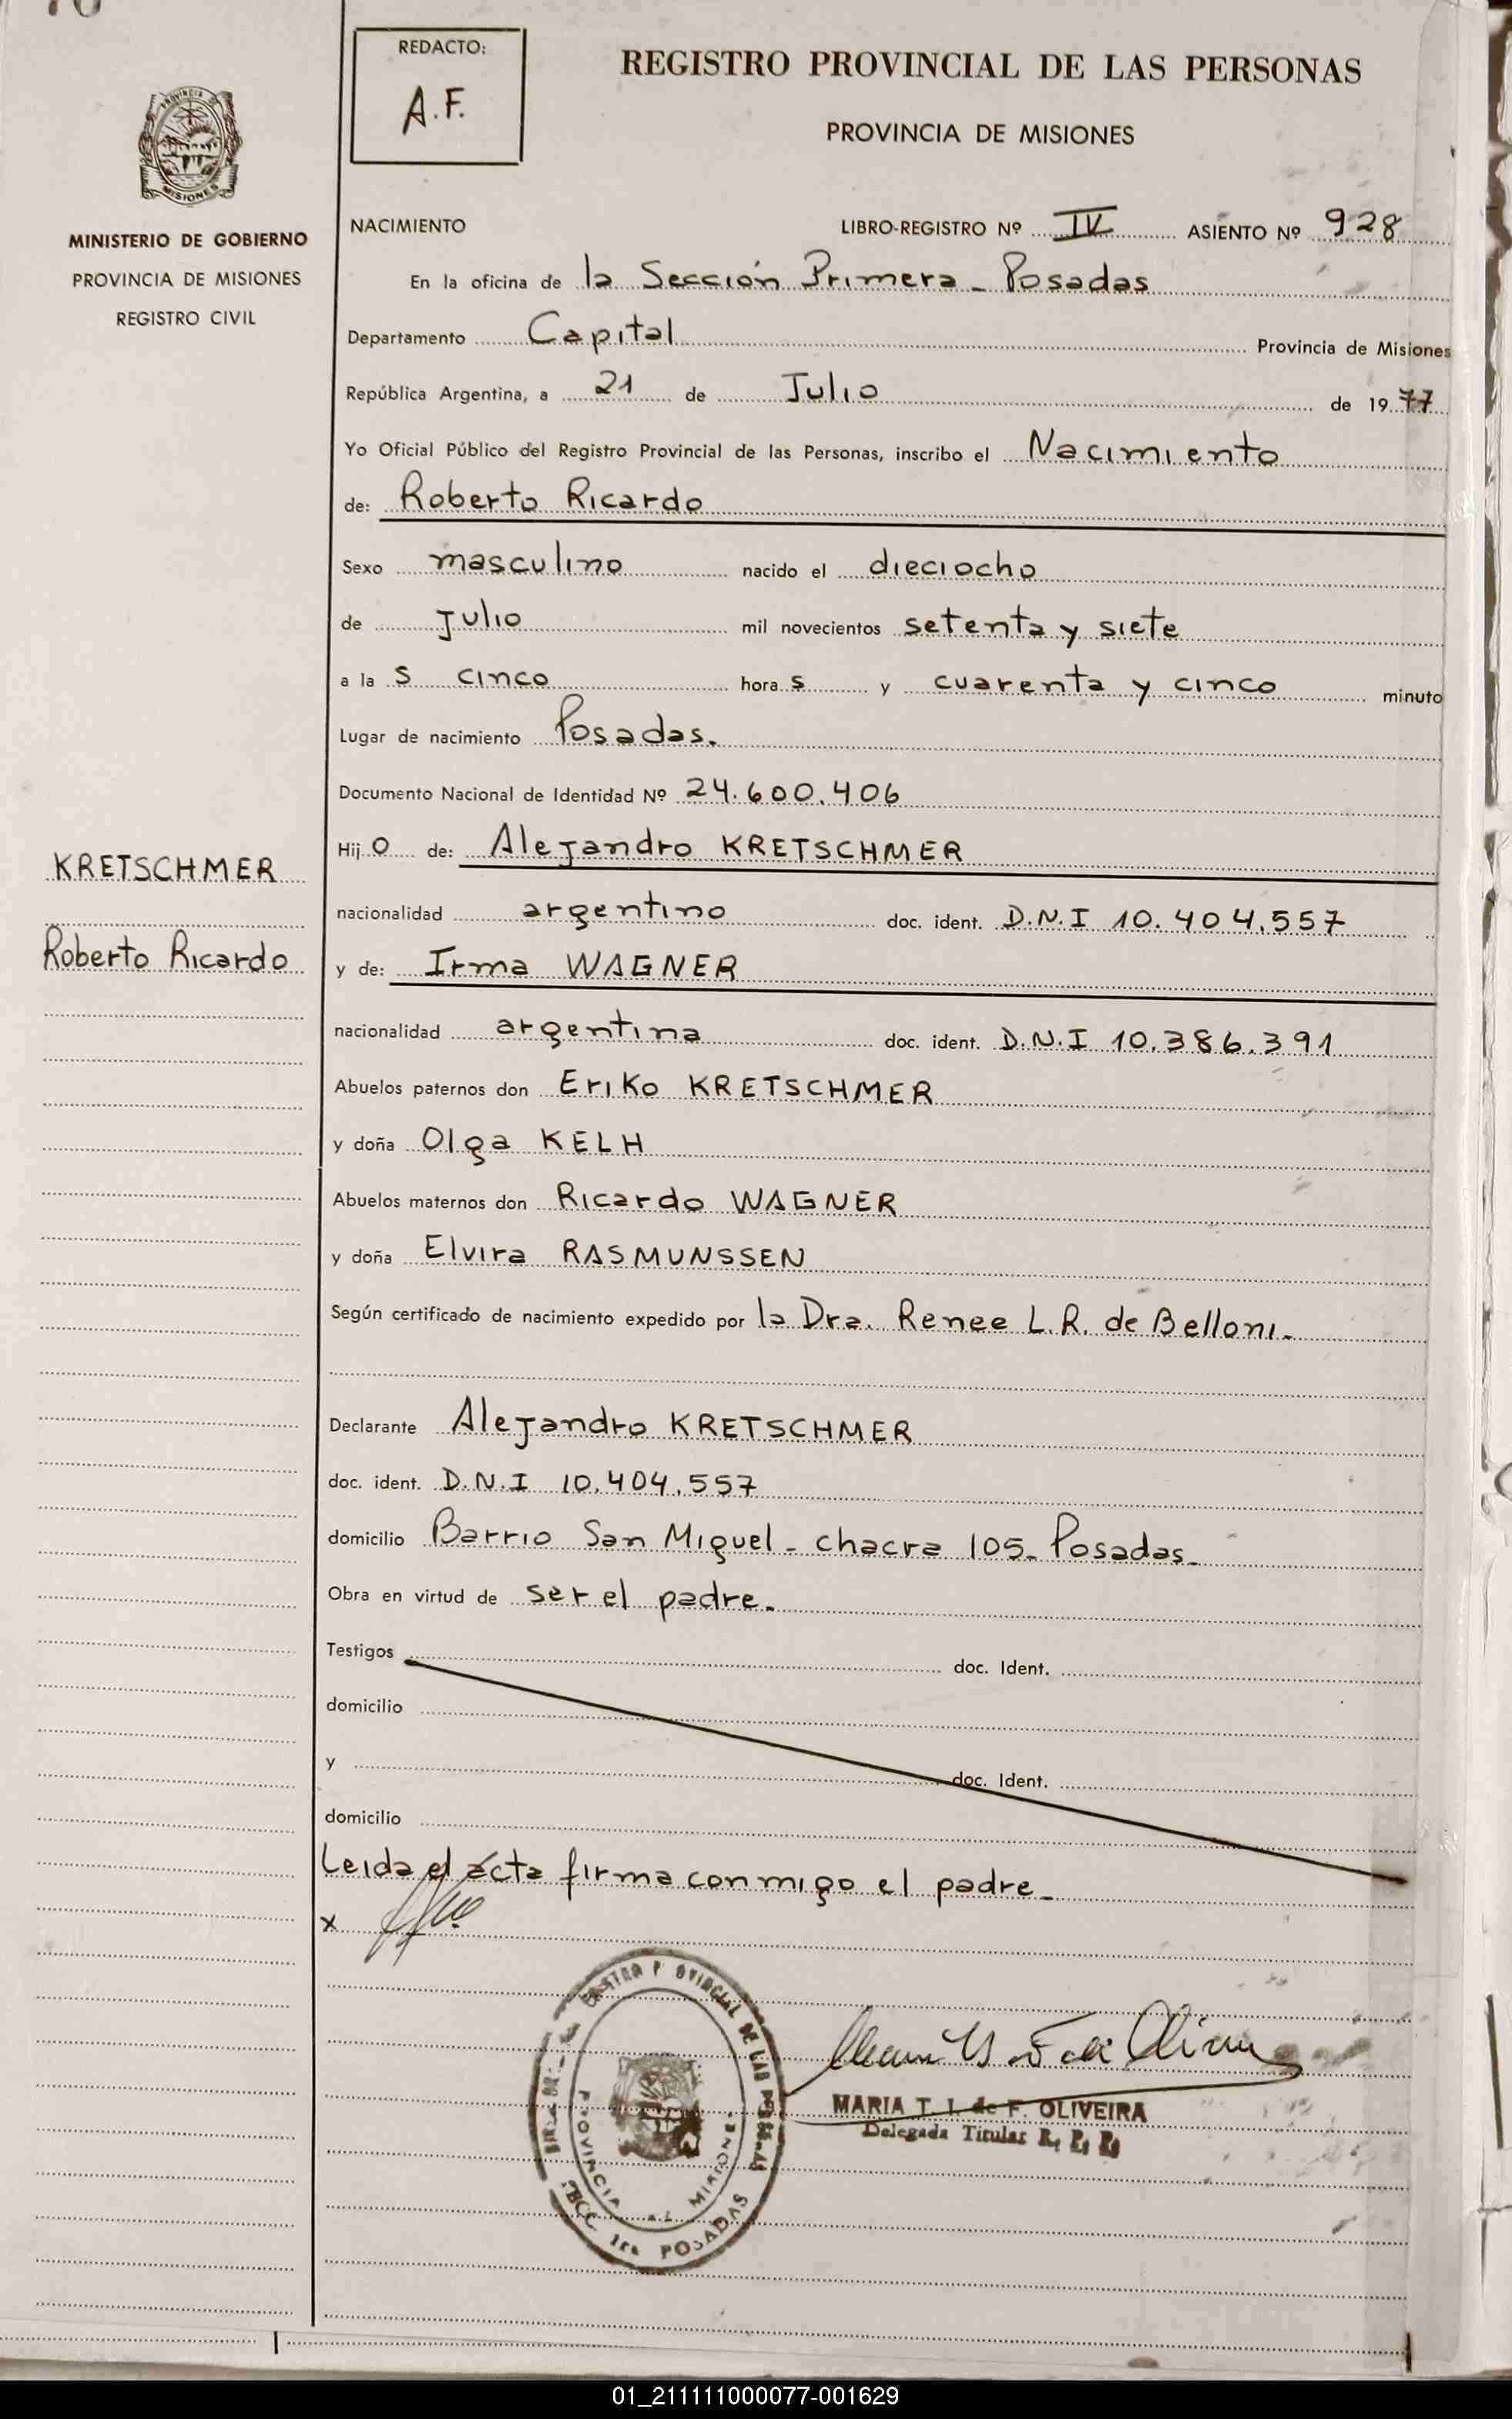 REDACTO:
A.F.
REGISTRO PROVINCIAL DE LAS PERSONAS
PROVINCIA DE MISIONES
MISIONES
MINISTERIO DE GOBIERNO
PROVINCIA DE MISIONES
REGISTRO CIVIL
NACIMIENTO LIBRO-REGISTRO Nº IV ASIENTO Nº 928
En la oficina de la Sección Primera - Posadas
Departamento Capital Provincia de Misiones
República Argentina, a 21 de Julio de 1977
Yo Oficial Público del Registro Provincial de las Personas, inscribo el Nacimiento
de: Roberto Ricardo
Sexo masculino nacido el dieciocho
de Julio mil novecientos setenta y siete
a la s cinco hora s y cuarenta y cinco minuto
Lugar de nacimiento Posadas.
Documento Nacional de Identidad Nº 24.600.406
Hij o de: Alejandro KRETSCHMER
KRETSCHMER
Roberto Ricardo
nacionalidad argentino doc. ident. D.N.I 10.404.557
y de: Irma WAGNER
nacionalidad argentina doc. ident. D.N.I 10.386.391
Abuelos paternos don Eriko KRETSCHMER
y doña Olga KELH
Abuelos maternos don Ricardo WAGNER
y doña Elvira RASMUNSSEN
Según certificado de nacimiento expedido por la Dra. Renee L.R. de Belloni.
Declarante Alejandro KRETSCHMER
doc. ident. D.N.I 10.404.557
domicilio Barrio San Miguel - chacra 105- Posadas-
Obra en virtud de ser el padre.
Testigos doc. Ident.
domicilio
y doc. Ident.
domicilio
Leida el acta firma conmigo el padre-
x
PROVINCIA MISIONES
POSADAS
MARIA T. I. de F. OLIVEIRA
Delegada Titular R. P. P.
01_211111000077-001629